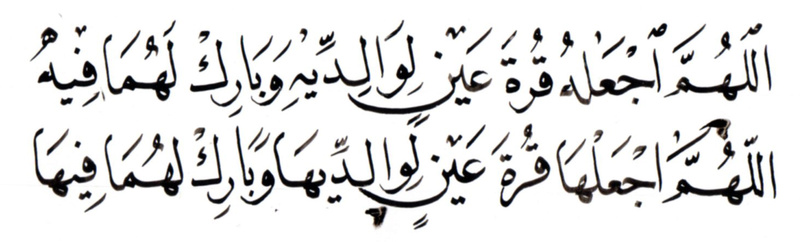 اَللّٰهُمَّ اجْعَلْهُ قُرَّةَ عَيْنٍ لِوَالِدَيْهِ وَبَارِكْ لَهُمَا فِيْهِ
اَللّٰهُمَّ اجْعَلْهَا قُرَّةَ عَيْنٍ لِوَالِدَيْهَا وَبَارِكْ لَهُمَا فِيهَا